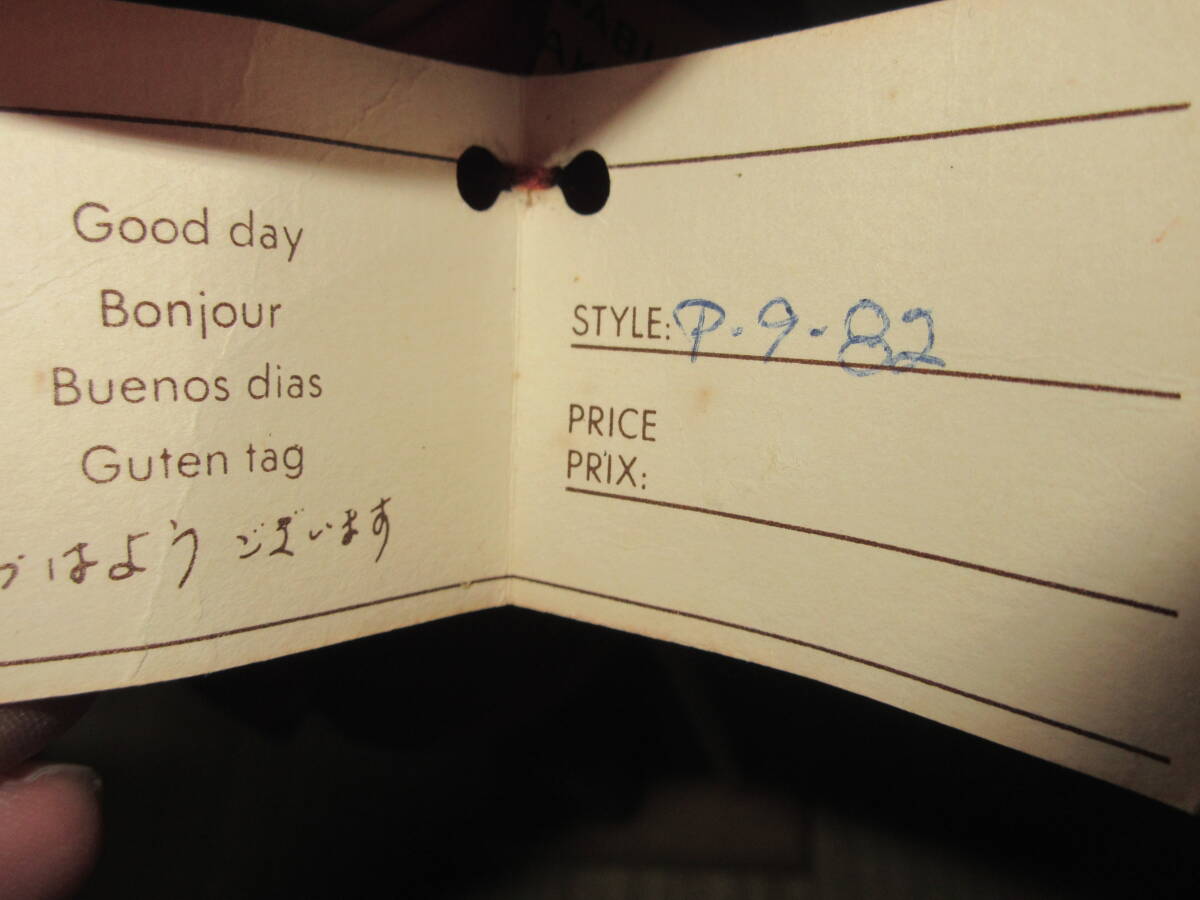 Good day
Bonjour
Buenos dias
Guten tag
おはよう ございます
STYLE: P.9.82
PRICE
PRIX: